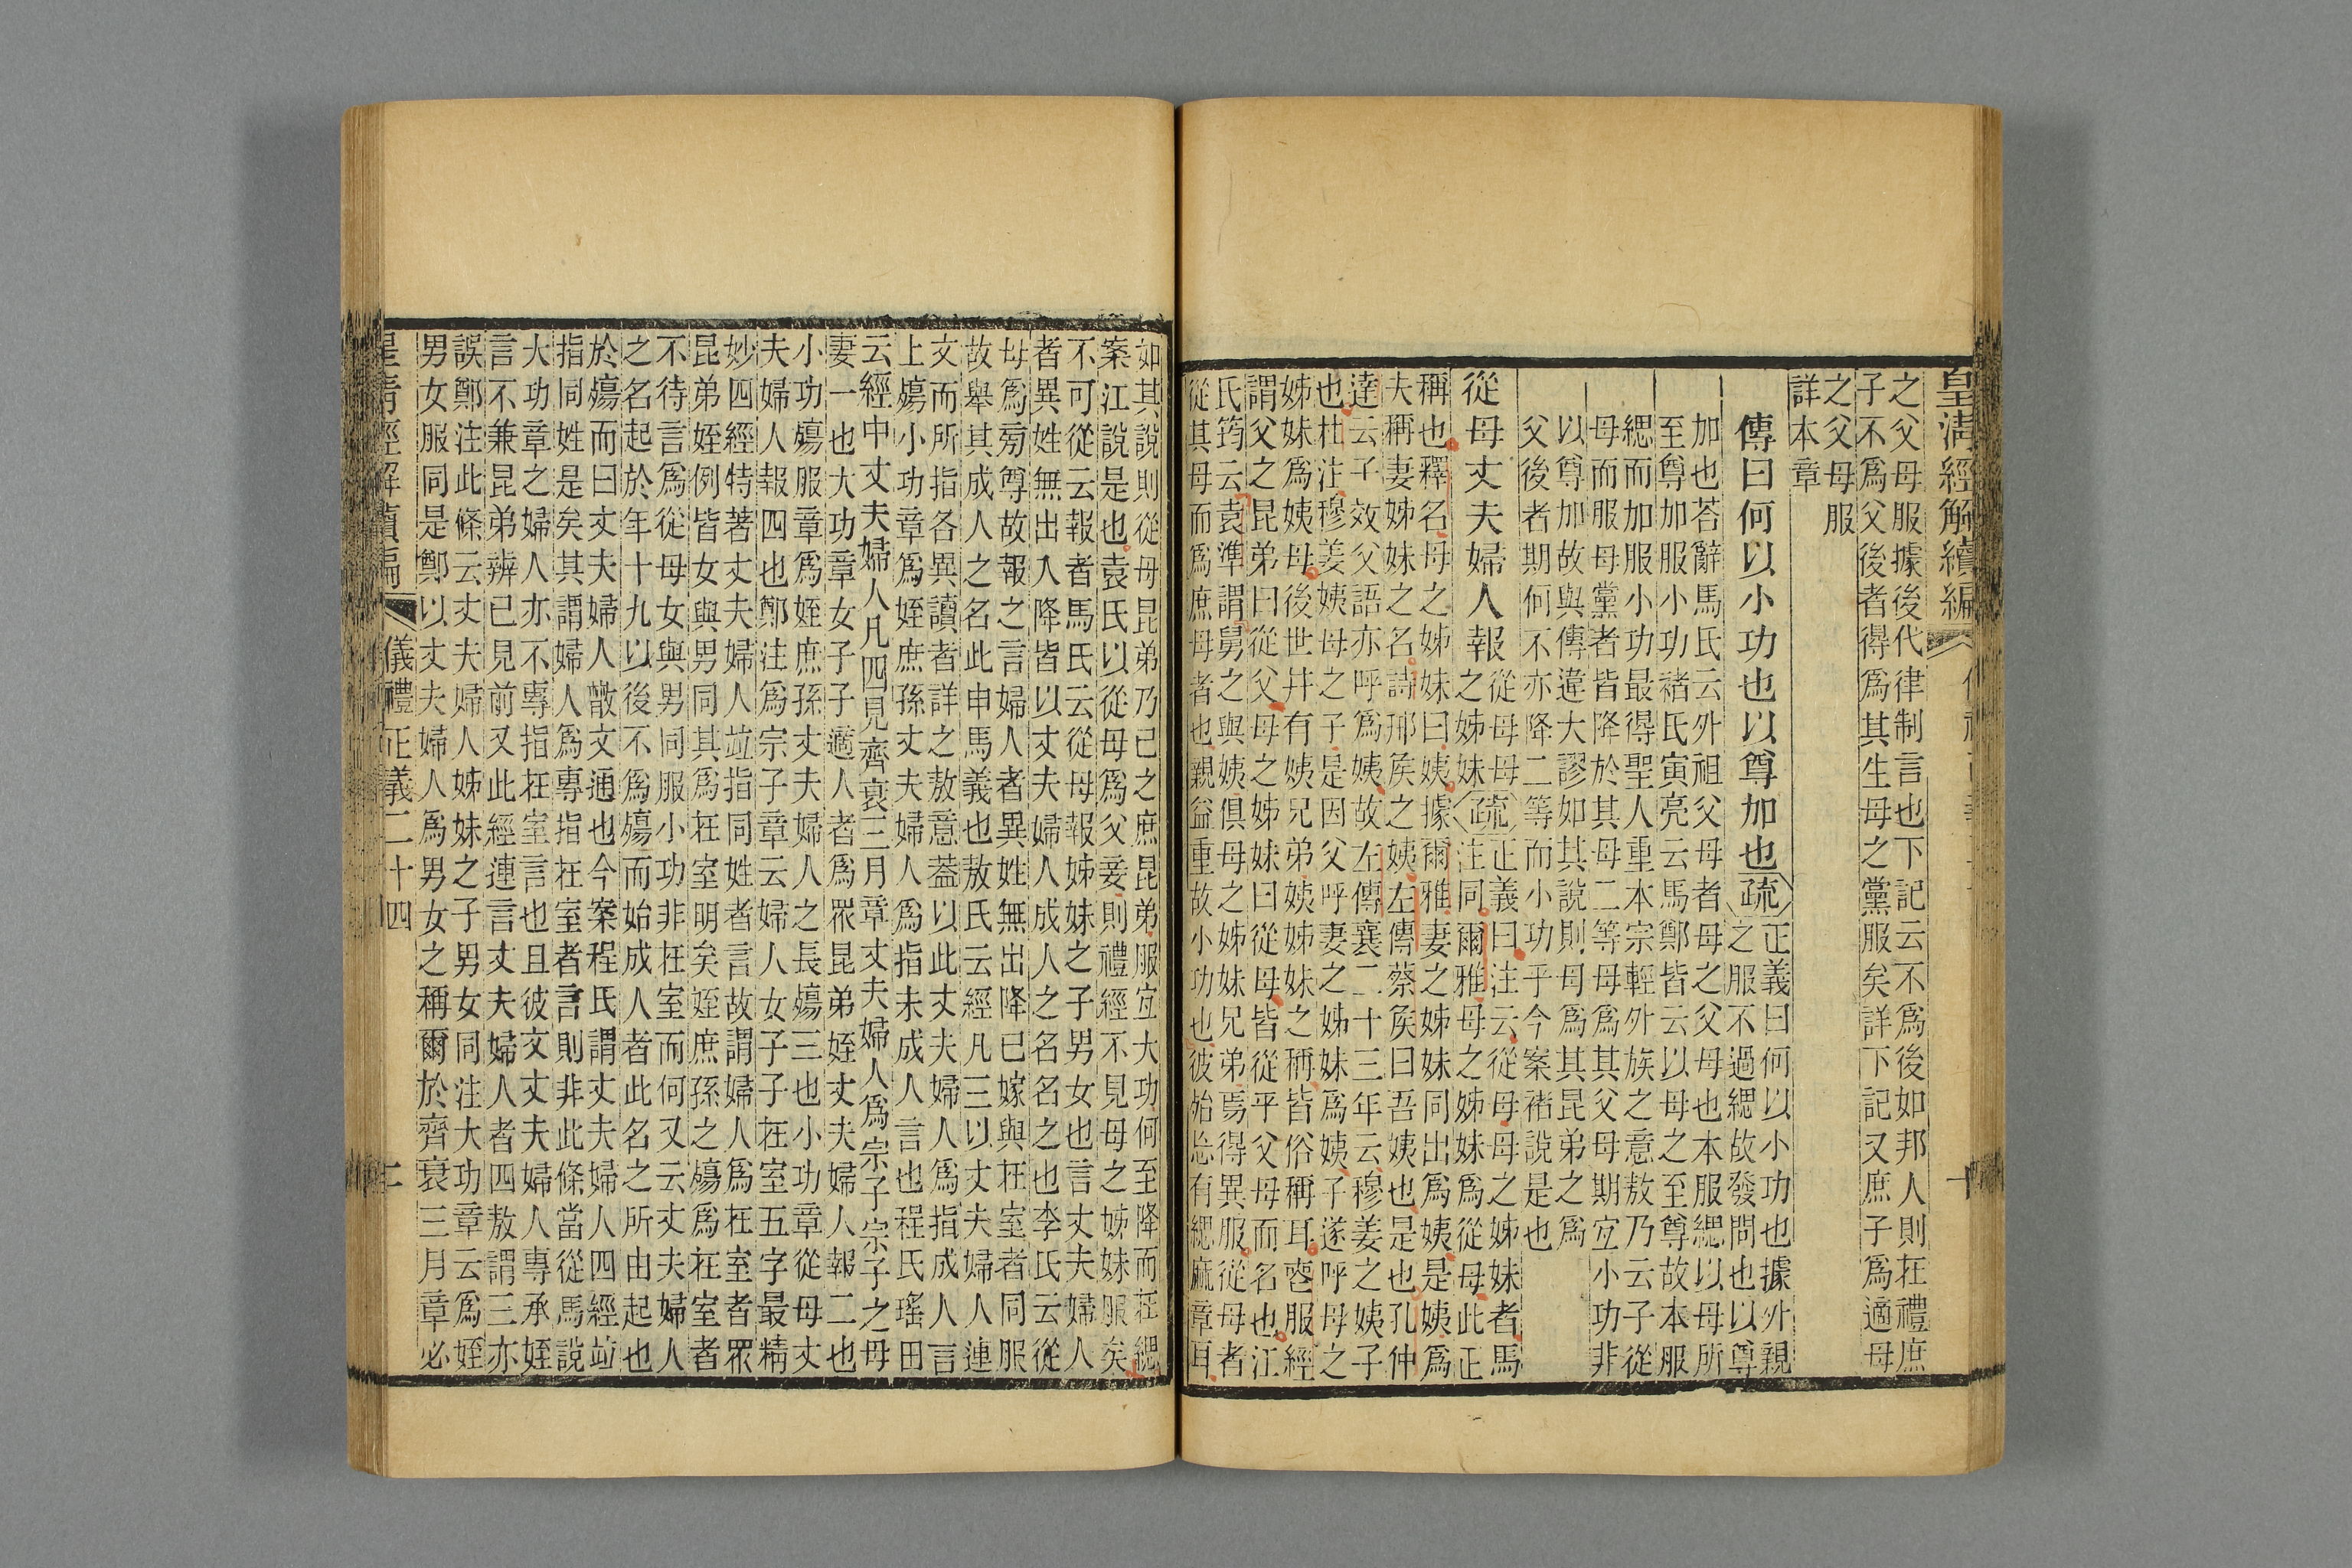 皇清經解續編
之父母服據後代律制言也下記云不爲後如邦人則在禮庶
子不爲父後者得爲其生母之黨服矣詳下記又庶子爲適母
之父母服
詳本章
傳曰何以小功也以尊加也疏正義曰何以小功也據外親
之服不過緦故發問也以尊
加也荅辭馬氏云外祖父母者母之父母也本服緦以母所
至尊加服小功禇氏寅亮云馬鄭皆云以母之至尊故本服
緦而加服小功最得聖人重本宗輕外族之意敖乃云子從
母而服母黨者皆降於其母二等母爲其父母期宐小功非
以尊加故與傳違大謬如其說則母爲其昆弟之爲
父後者期何不亦降二等而小功乎今案禇說是也
從母丈夫婦人報從母母之姊妹疏正義曰注云從母母之姊妹者馬
注同爾雅母之姊妹爲從母此正
稱也釋名母之姊妹曰姨據爾雅妻之姊妹同出爲姨是姨爲
夫稱妻姊妹之名詩邢矦之姨左傳蔡矦曰吾姨也是也孔仲
達云子效父語亦呼爲姨故左傳襄二十三年云穆姜之姨子
也杜注穆姜姨母之子是因父呼妻之姊妹爲姨子遂呼母之
姊妹爲姨母後世幷有姨兄弟姨姊妹之稱皆俗稱耳喪服經
謂父之昆弟曰從父母之姊妹曰從母皆從乎父母而名也江
氏筠云袁準謂舅之與姨俱母之姊妹兄弟焉得異服從母者
從其母而爲庶母者也親益重故小功也彼始㤀有緦麻章耳
如其說則從母昆弟乃已之庶昆弟服宐大功何至降而在緦
案江說是也袁氏以從母爲父妾則禮經不見母之姊妹服矣
不可從云報者馬氏云從母報姊妹之子男女也言丈夫婦人
者異姓無出入降皆以丈夫婦人成人之名名之也李氏云從
母爲㫄尊故報之言婦人者異姓無出降已嫁與在室者同服
故舉其成人之名此申馬義也敖氏云經凡三以丈夫婦人連
文而所指各異讀者詳之敖意葢以此丈夫婦人爲指成人言
上殤小功章爲姪庶孫丈夫婦人爲指未成人言也程氏瑤田
云經中丈夫婦人凡四見齊衰三月章丈夫婦人爲宗子宗子之母
妻一也大功章女子子適人者爲眾昆弟姪丈夫婦人報二也
小功殤服章爲姪庶孫丈夫婦人之長殤三也小功章從母丈
夫婦人報四也鄭注爲宗子章云婦人女子子在室五字最精
妙四經特著丈夫婦人竝指同姓者言故謂婦人爲在室者眾
昆弟姪例皆女與男同其爲在室明矣姪庶孫之殤爲在室者
不待言爲從母女與男同服小功非在室而何又云丈夫婦人
之名起於年十九以後不爲殤而始成人者此名之所由起也
於殤而曰丈夫婦人散文通也今案程氏謂丈夫婦人四經竝
指同姓是矣其謂婦人爲專指在室者言則非此條當從馬說
大功章之婦人亦不專指在室言也且彼文丈夫婦人專承姪
言不兼昆弟辨已見前又此經連言丈夫婦人者四敖謂三亦
誤鄭注此條云丈夫婦人姊妹之子男女同注大功章云爲姪
男女服同是鄭以丈夫婦人爲男女之稱爾於齊衰三月章必
皇清經解續編 儀禮正義二十四